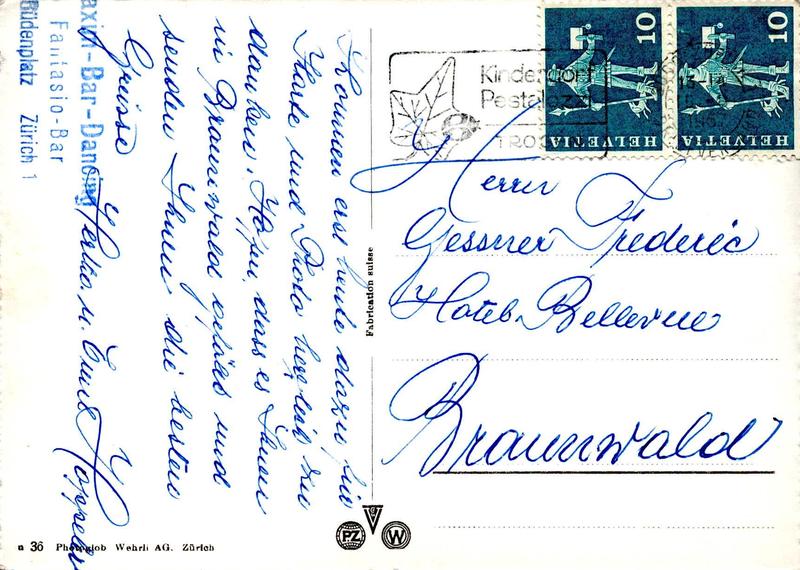 Kommen erst heute dazu für
Karte und Photo herzlich zu
danken. Hoffen, dass es Ihnen
in Braunwald gefällt und
senden Ihnen die besten
Grüsse
u. Emil
axim-Bar-Dancing
Fantasio-Bar
Büdenplatz Zürich 1
Fabrication suisse
Kinderdorf
Pestalozzi
TROGEN
10
HELVETIA
10
HELVETIA
Herrn
Gessner Frederic
Hotel Bellevue
Braunwald
PZ
W
n 36 Photoglob Wehrli AG. Zürich